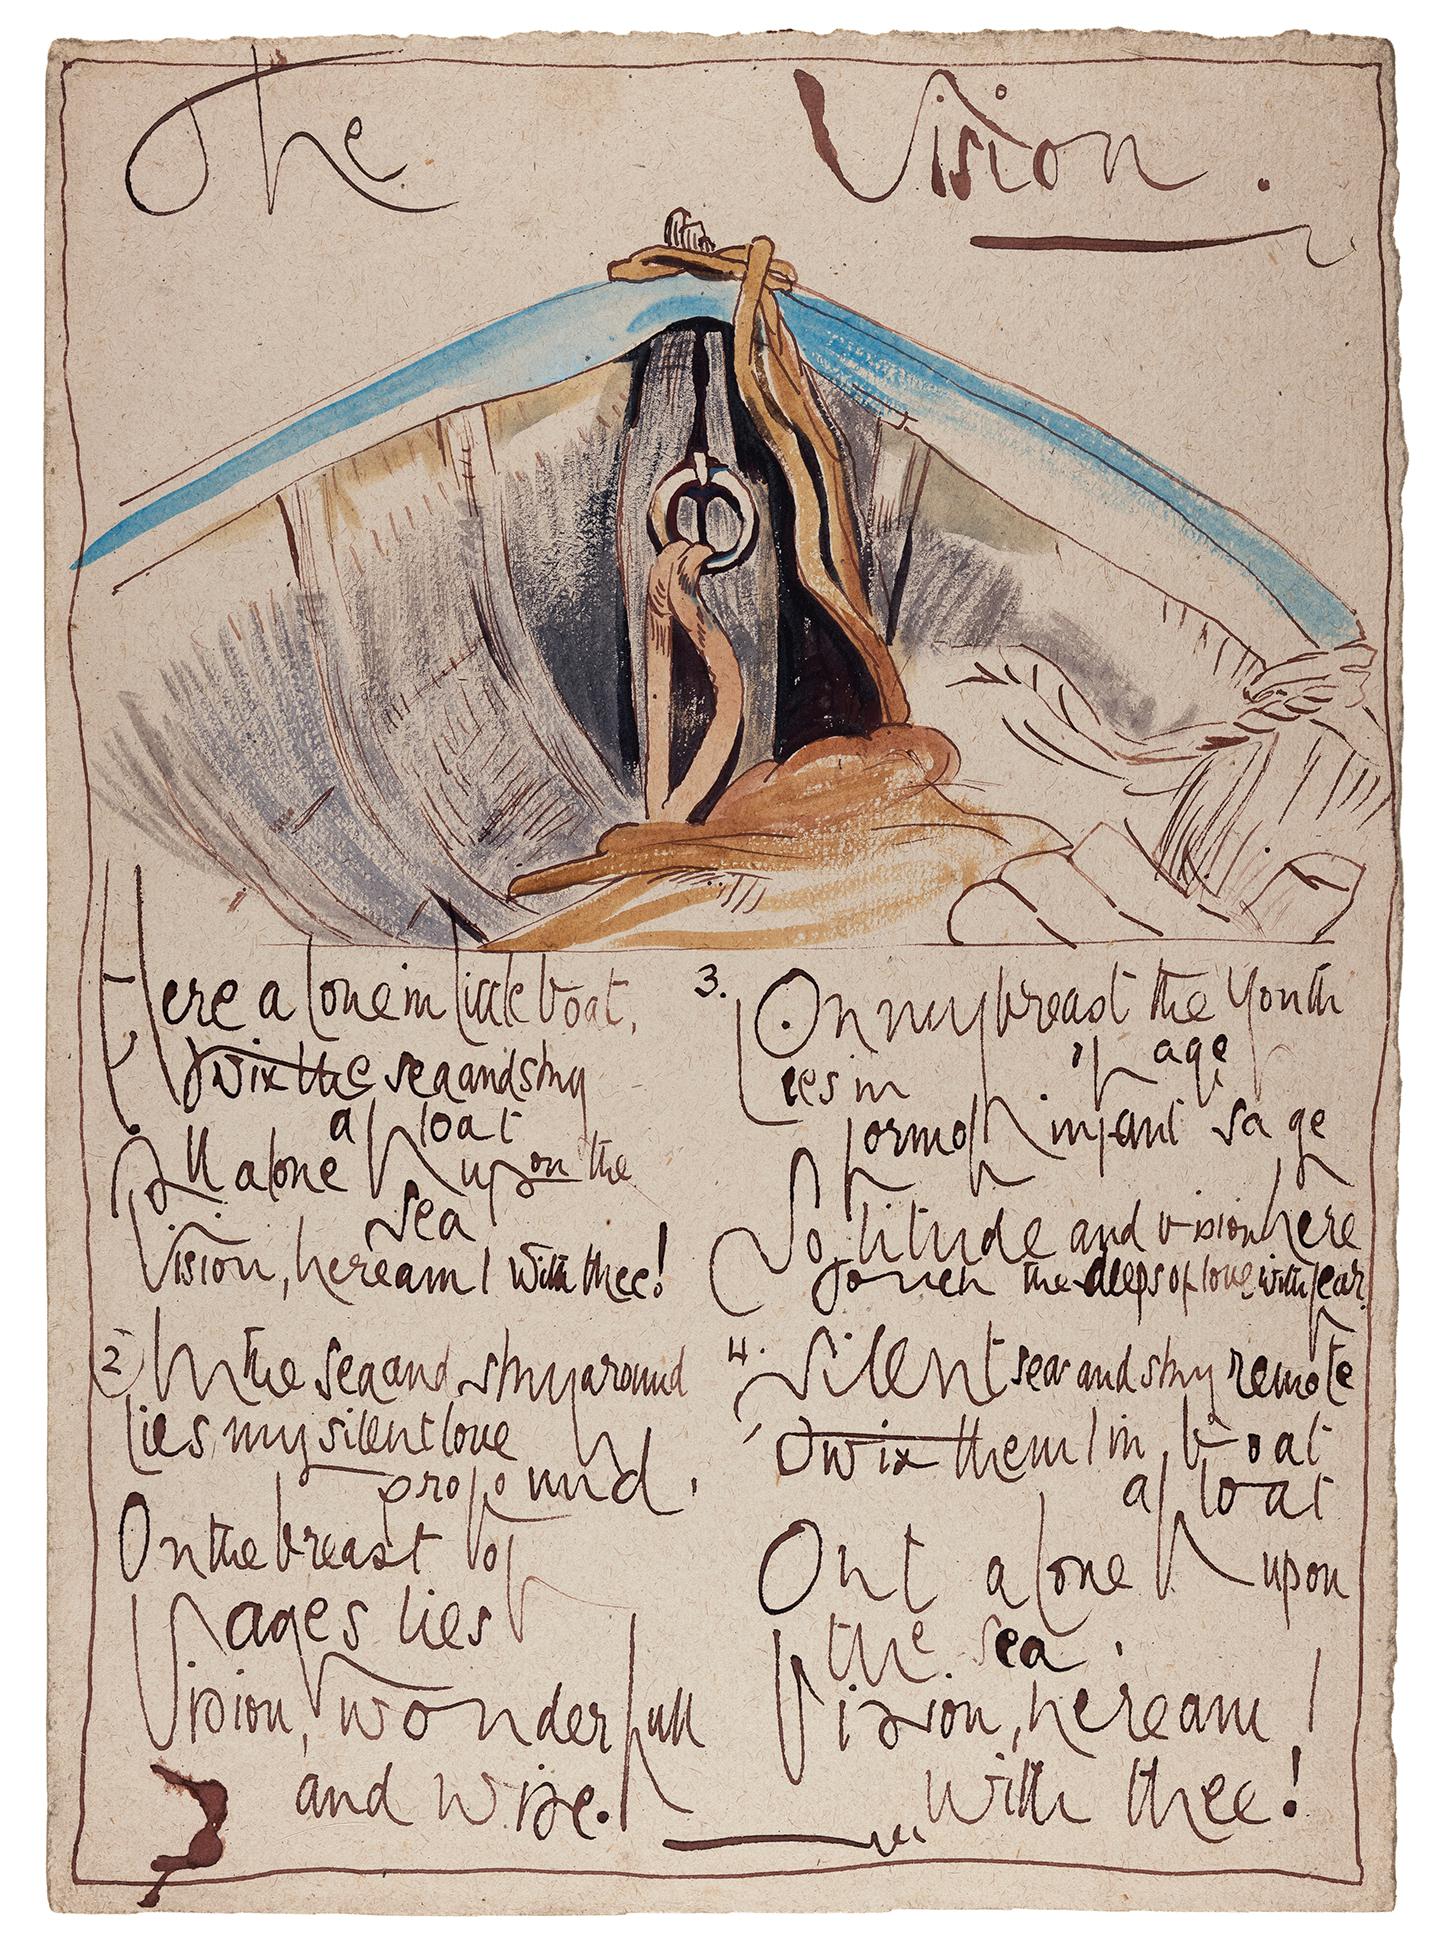 The Vision.
Here alone in little boat,
Twix the sea and sky
afloat
All alone upon the
sea
Vision, here am I with thee!
2) In the sea and sky around
Lies my silent love
profound.
On the breast of
ages lies
Vision, wonderfull
and wise.
3. On my breast the Youth
of age
Lies in
form of infant sage
Solitude and vision here
Touch the deeps of love with fear.
4. Silent sea and sky remote
Twix them I in boat
afloat
Out alone upon
the sea.
Vision, here am I
with thee!